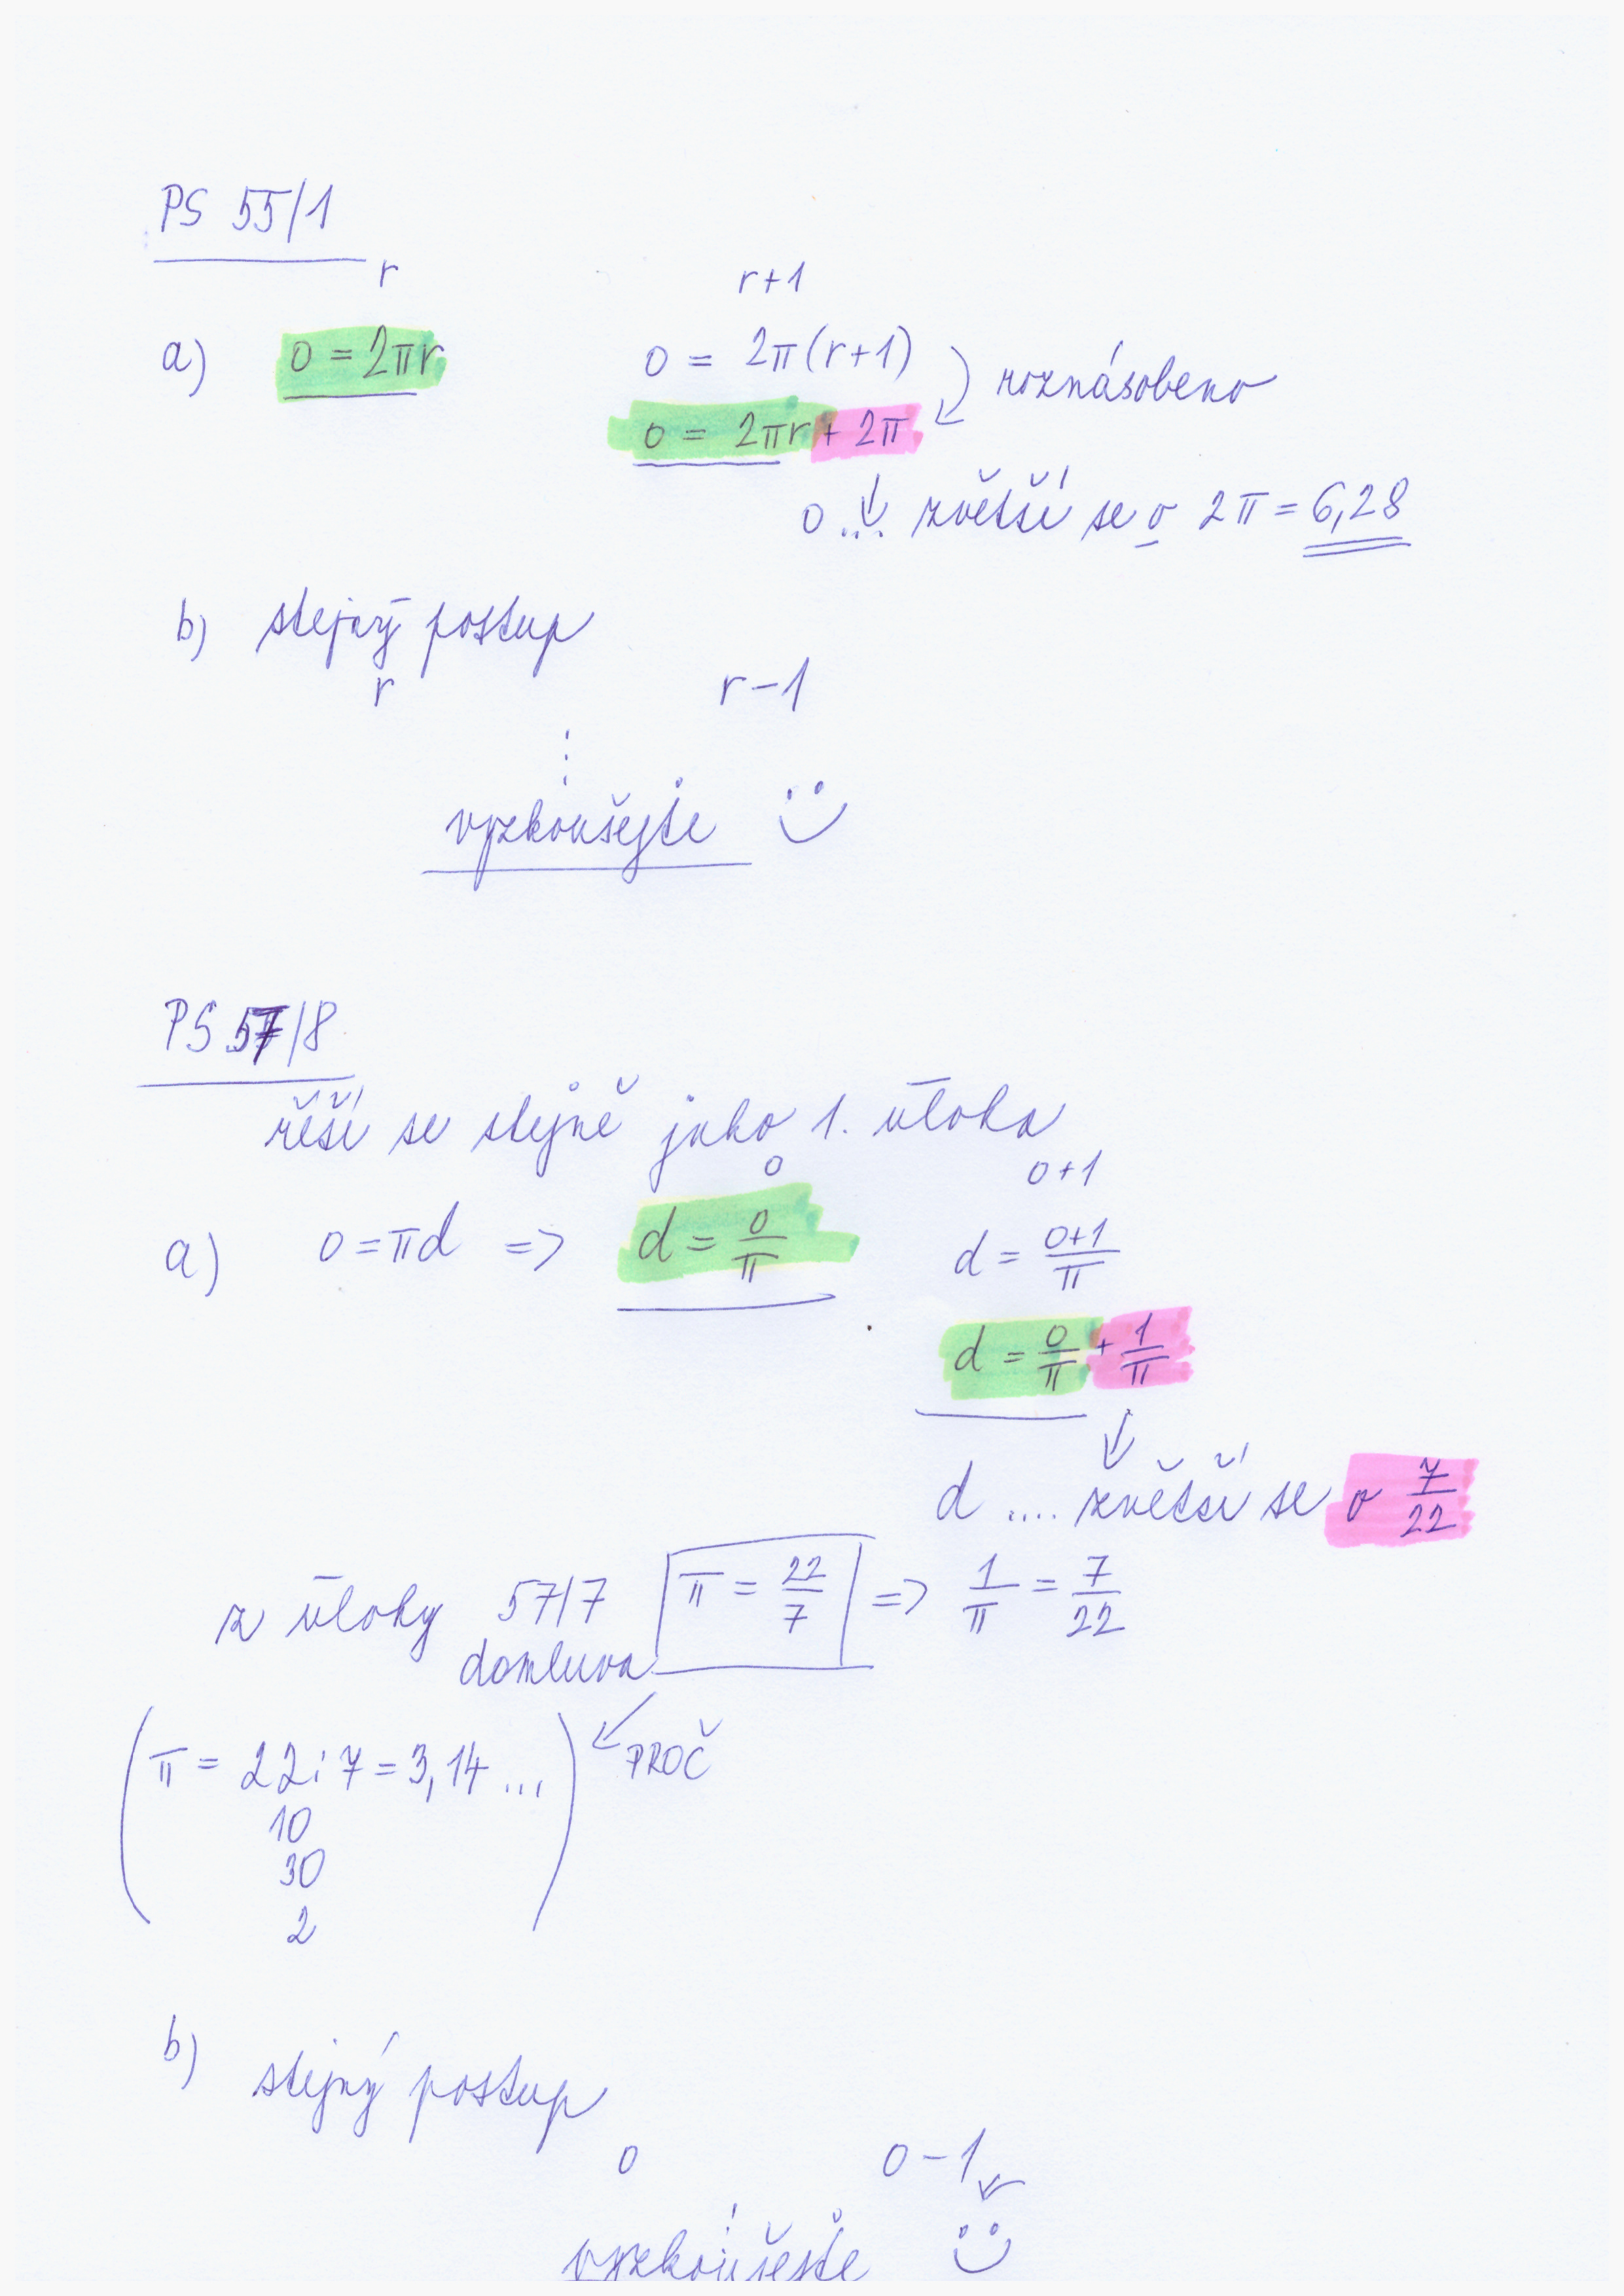 PS 55/1
r r+1
a) o = 2πr o = 2π(r+1) roznásobeno
o = 2πr + 2π
o ... zvětší se o 2π = 6,28
b) stejný postup
r r-1
⋮
vyzkoušejte
PS 57/8
řeší se stejně jako 1. úloha
o o+1
a) o = πd => d = o/π d = (o+1)/π
d = o/π + 1/π
d .... zvětší se o 7/22
z úlohy 57/7 π = 22/7 => 1/π = 7/22
domluva
PROČ
(π = 22:7 = 3,14 ...)
10
30
2
b) stejný postup
o o-1
vyzkoušejte